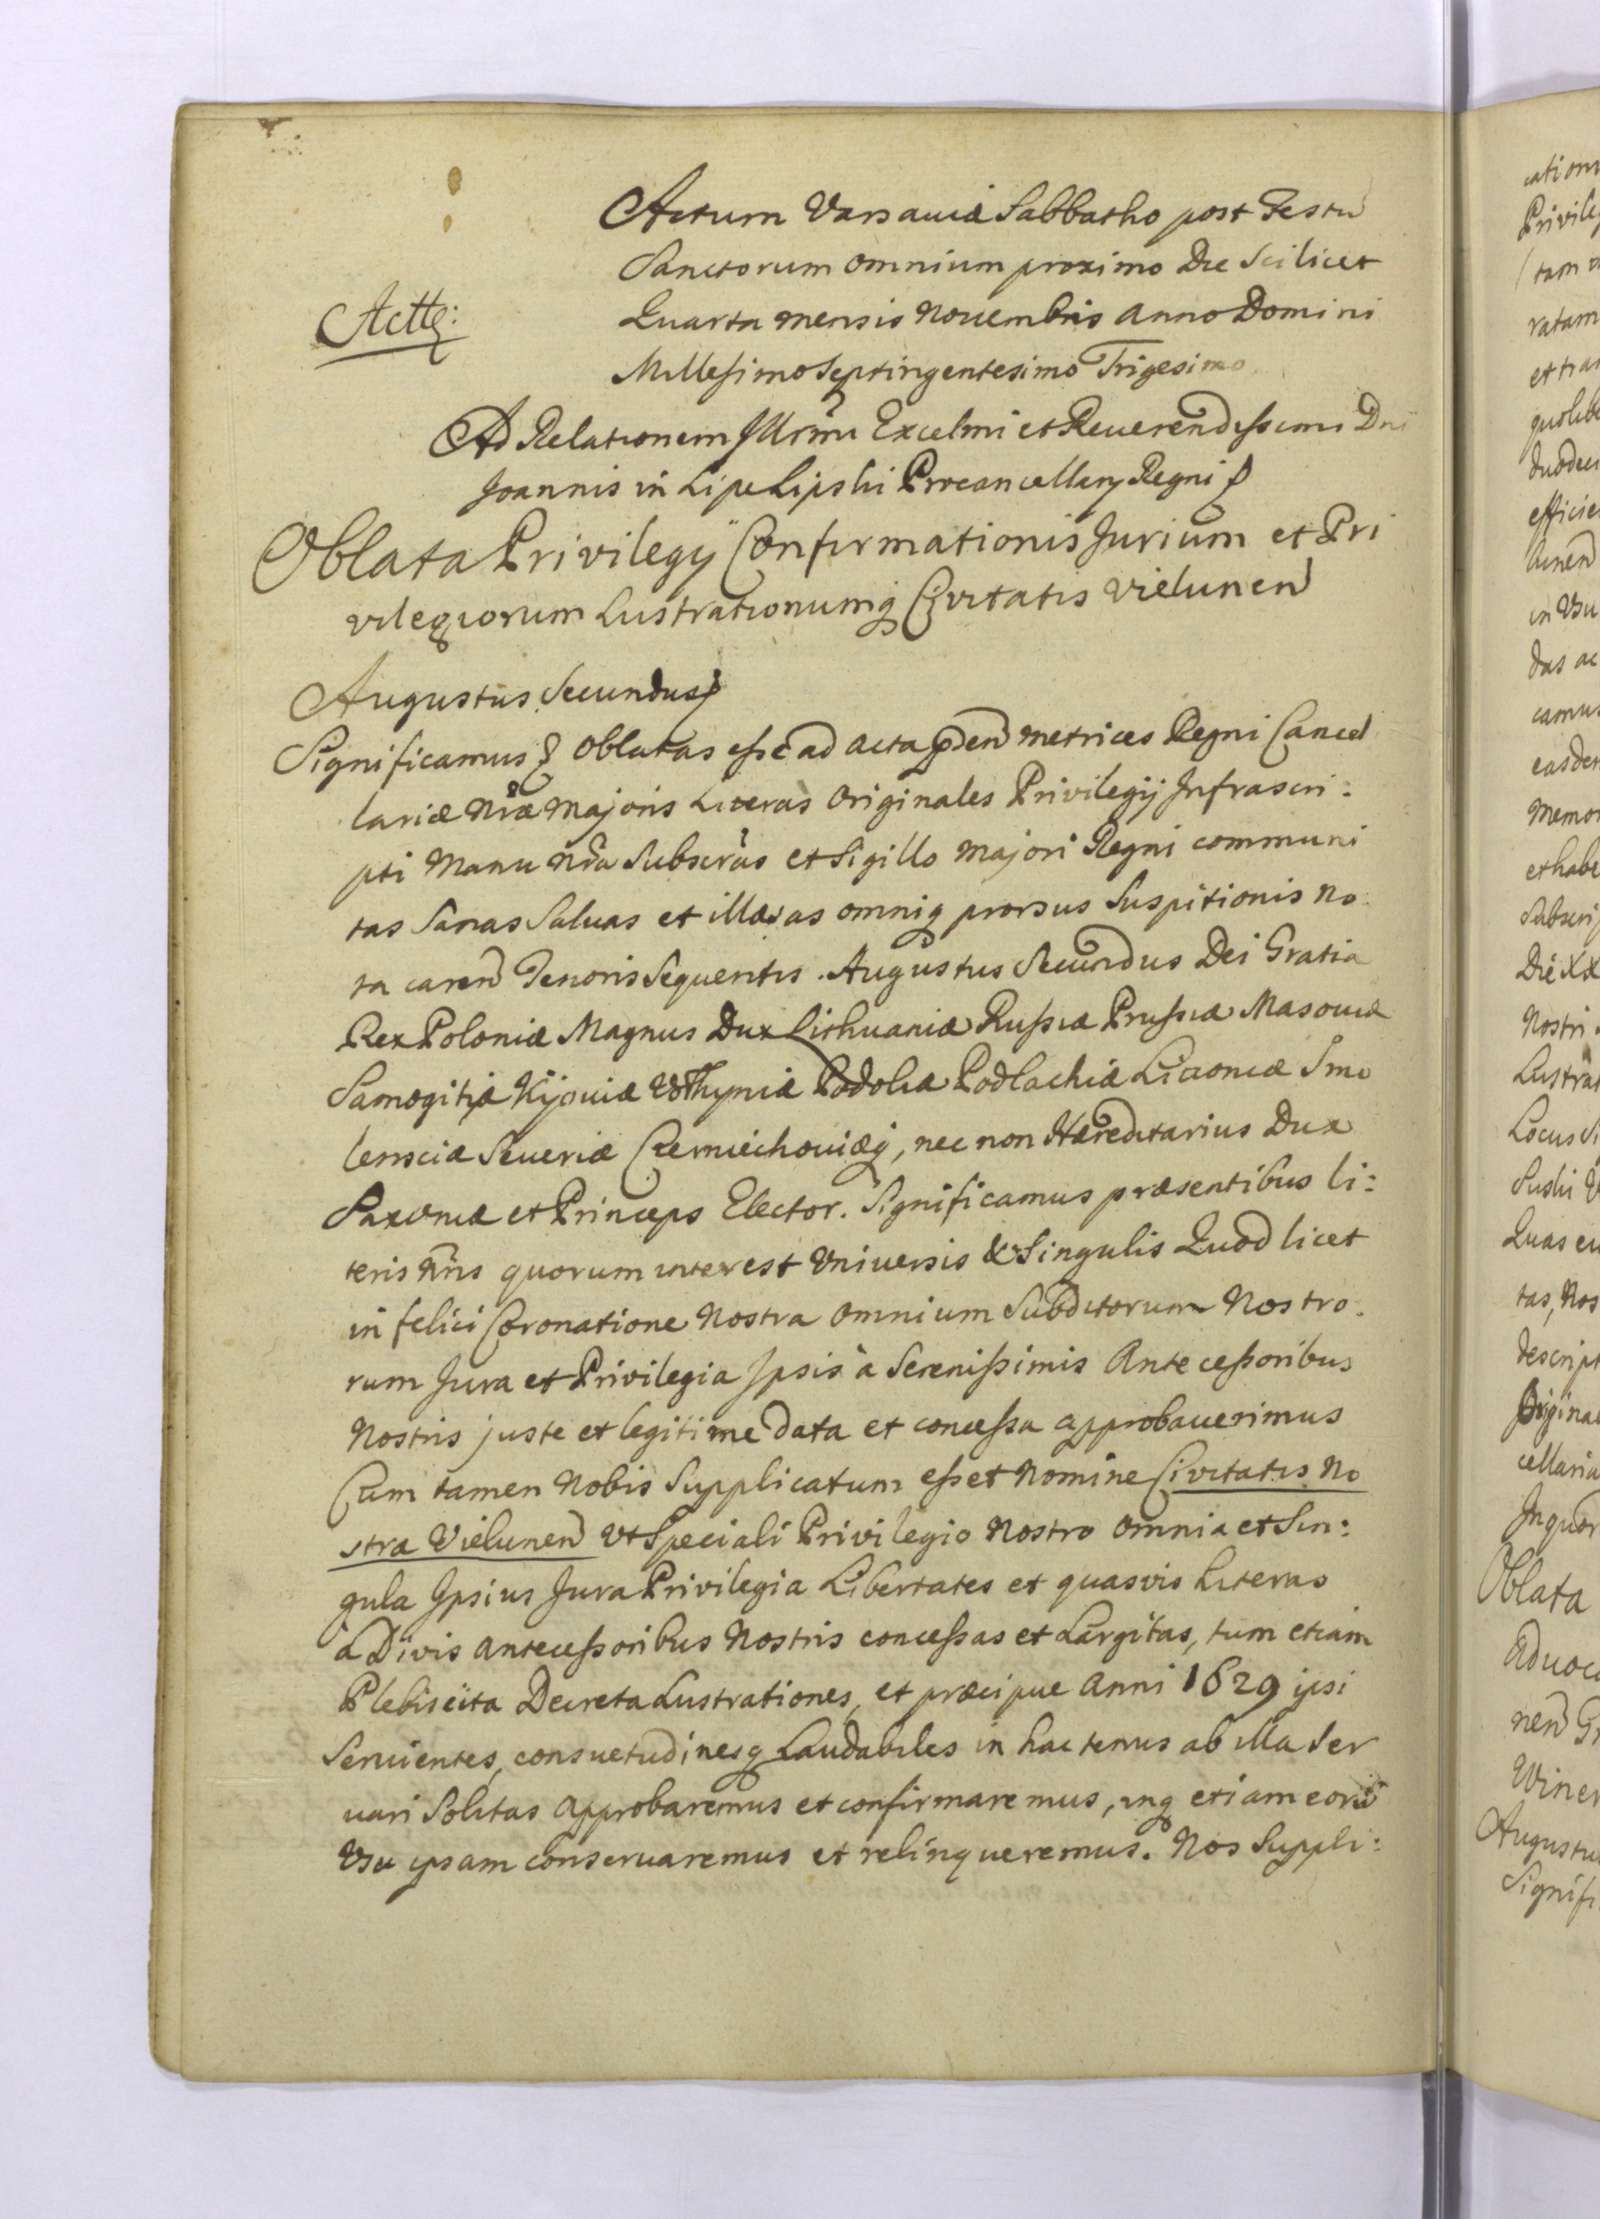 Actum Varsaviæ Sabbatho post Festū
Sanctorum omnium proximo Die Scilicet
Actte:
Quarta mensis Novembris anno Domini
Millesimo Septingentesimo Trigesimo
Ad Relationem Illrmi Excelmi et Reverendissimi Dni
Joannis in Lipe Lipski Procancellarÿ Regni
Oblata Privilegÿ Confirmationis Jurium et Pri
vilegiorum Lustrationumq Civitatis Vielunen
Augustus Secundus
Significamus Oblatas esse ad acta pden metrices Regni Cancel
lariæ Nræ Majoris Literas Originales Privilegij Infrascri:
pti Manu Nra Subscras et Sigillo majori Regni communi
tas Sanas Salvas et illæsas omniq prorsus Suspitionis no
ta caren Tenoris Sequentis. Augustus Secundus Dei Gratia
Rex Poloniæ Magnus Dux Lithuaniæ Russiæ Prussiæ Masoviæ
Samogitiæ Kijoviæ Volhyniæ Podoliæ Podlachiæ Livoniæ Smo
lensciæ Severiæ Czerniechoviæq, nec non Hæreditarius Dux
Saxoniæ et Princeps Elector. Significamus præsentibus li:
teris nris quorum interest Universis & Singulis Quod licet
in felici Coronatione Nostra omnium Subditorum Nostro
rum Jura et Privilegia Ipsis à Serenissimis Antecessoribus
Nostris juste et legitime data et concessa approbaverimus
Cum tamen Nobis Supplicatum esset Nomine Civitatis No
stræ Vielunen Ut Speciali Privilegio Nostro omnia et Sin:
gula Ipsius Jura Privilegia Libertates et quasvis Literas
à Divis antecessoribus Nostris concessas et Largitas, tum etiam
Plebiscita Decreta Lustrationes, et præcipue Anni 1629 ipsi
Servientes, consvetudinesq Laudabiles in hactenus ab illa Ser
vari Solitas approbaremus et confirmaremus, inq etiam eorū
Usu ipsam conservaremus et relinqueremus. Nos Suppli:
cationi
Privileg
ratam
et tran
quolibe
duodeci
efficie
in Usu
das ac
camus
easdem
Memor
et habe
Subscrip
Die XX
Nostri
Lustrat
Locus Si
Suski
Quas eu
tas, Nos
descript
Origina
cellaria
In quor
Oblata
Advoca
nen Gr
Winer
Augustu
Signifi